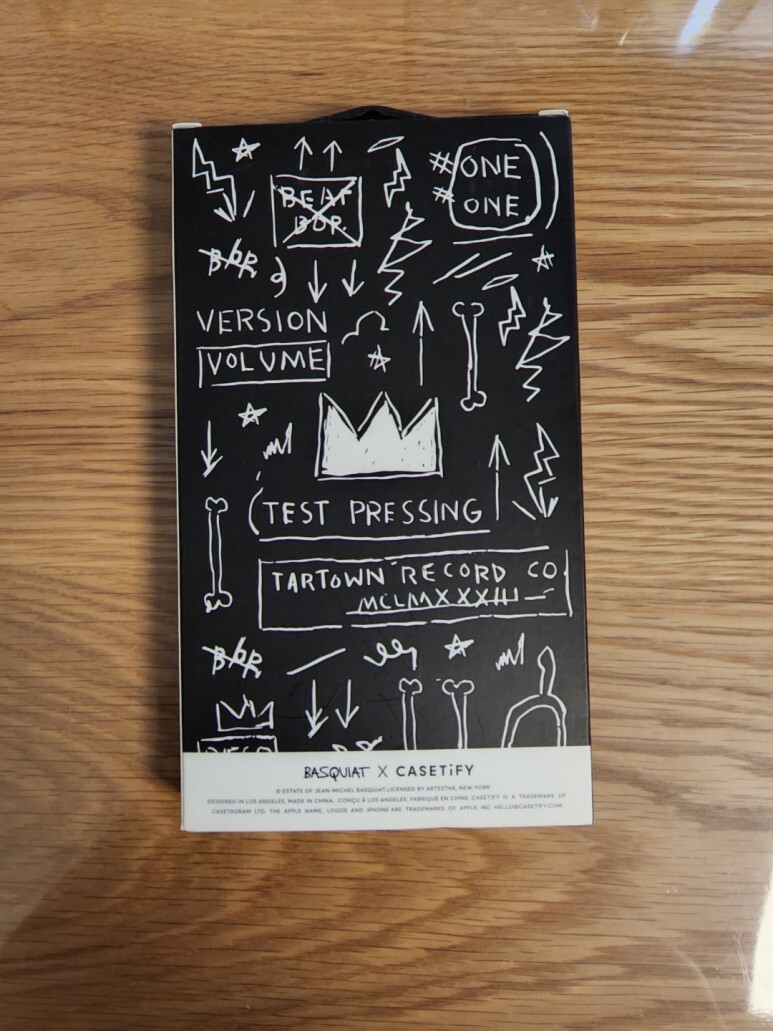 #ONE
# ONE
BEAT
BOP
BBR
VERSION
VOLUME
(TEST PRESSING
TARTOWN RECORD CO
BBR
BASQUIAT X CASETiFY
© ESTATE OF JEAN-MICHEL BASQUIAT.LICENSED BY ARTESTAR, NEW YORK
DESIGNED IN LOS ANGELES. MADE IN CHINA. CONÇU À LOS ANGELES. FABRIQUÉ EN CHINE. CASETiFY IS A TRADEMARK OF
CASETAGRAM LTD. THE APPLE NAME, LOGOS AND IPHONE ARE TRADEMARKS OF APPLE, INC. HELLO@CASETIFY.COM